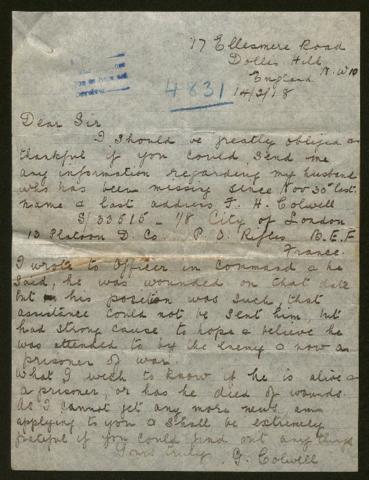 17 Ellesmere Road
Dollis Hill
N.W 10
England
4831
14/2/18
Dear Sir
I should be greatly obliged &
thankful if you could send me
any information regarding my husband
who has been missing since Nov 30th last.
name & last address F. H. Colwell
S/33515 - 1/8 City of London
13 Platoon D. Co. P. O. Rifles B.E.F
France.
I wrote to Officer in Command & he
said, he was wounded on that date
but his position was such, that
assistance could not be sent him, but
had strong cause to hope & believe he
was attended to by the Enemy & now a
prisoner of war.
What I wish to know if he is alive &
a prisoner, or has he died of wounds.
As I cannot get any more news am
applying to you & shall be extremely
grateful if you could find out any thing
Yours truly G. Colwell